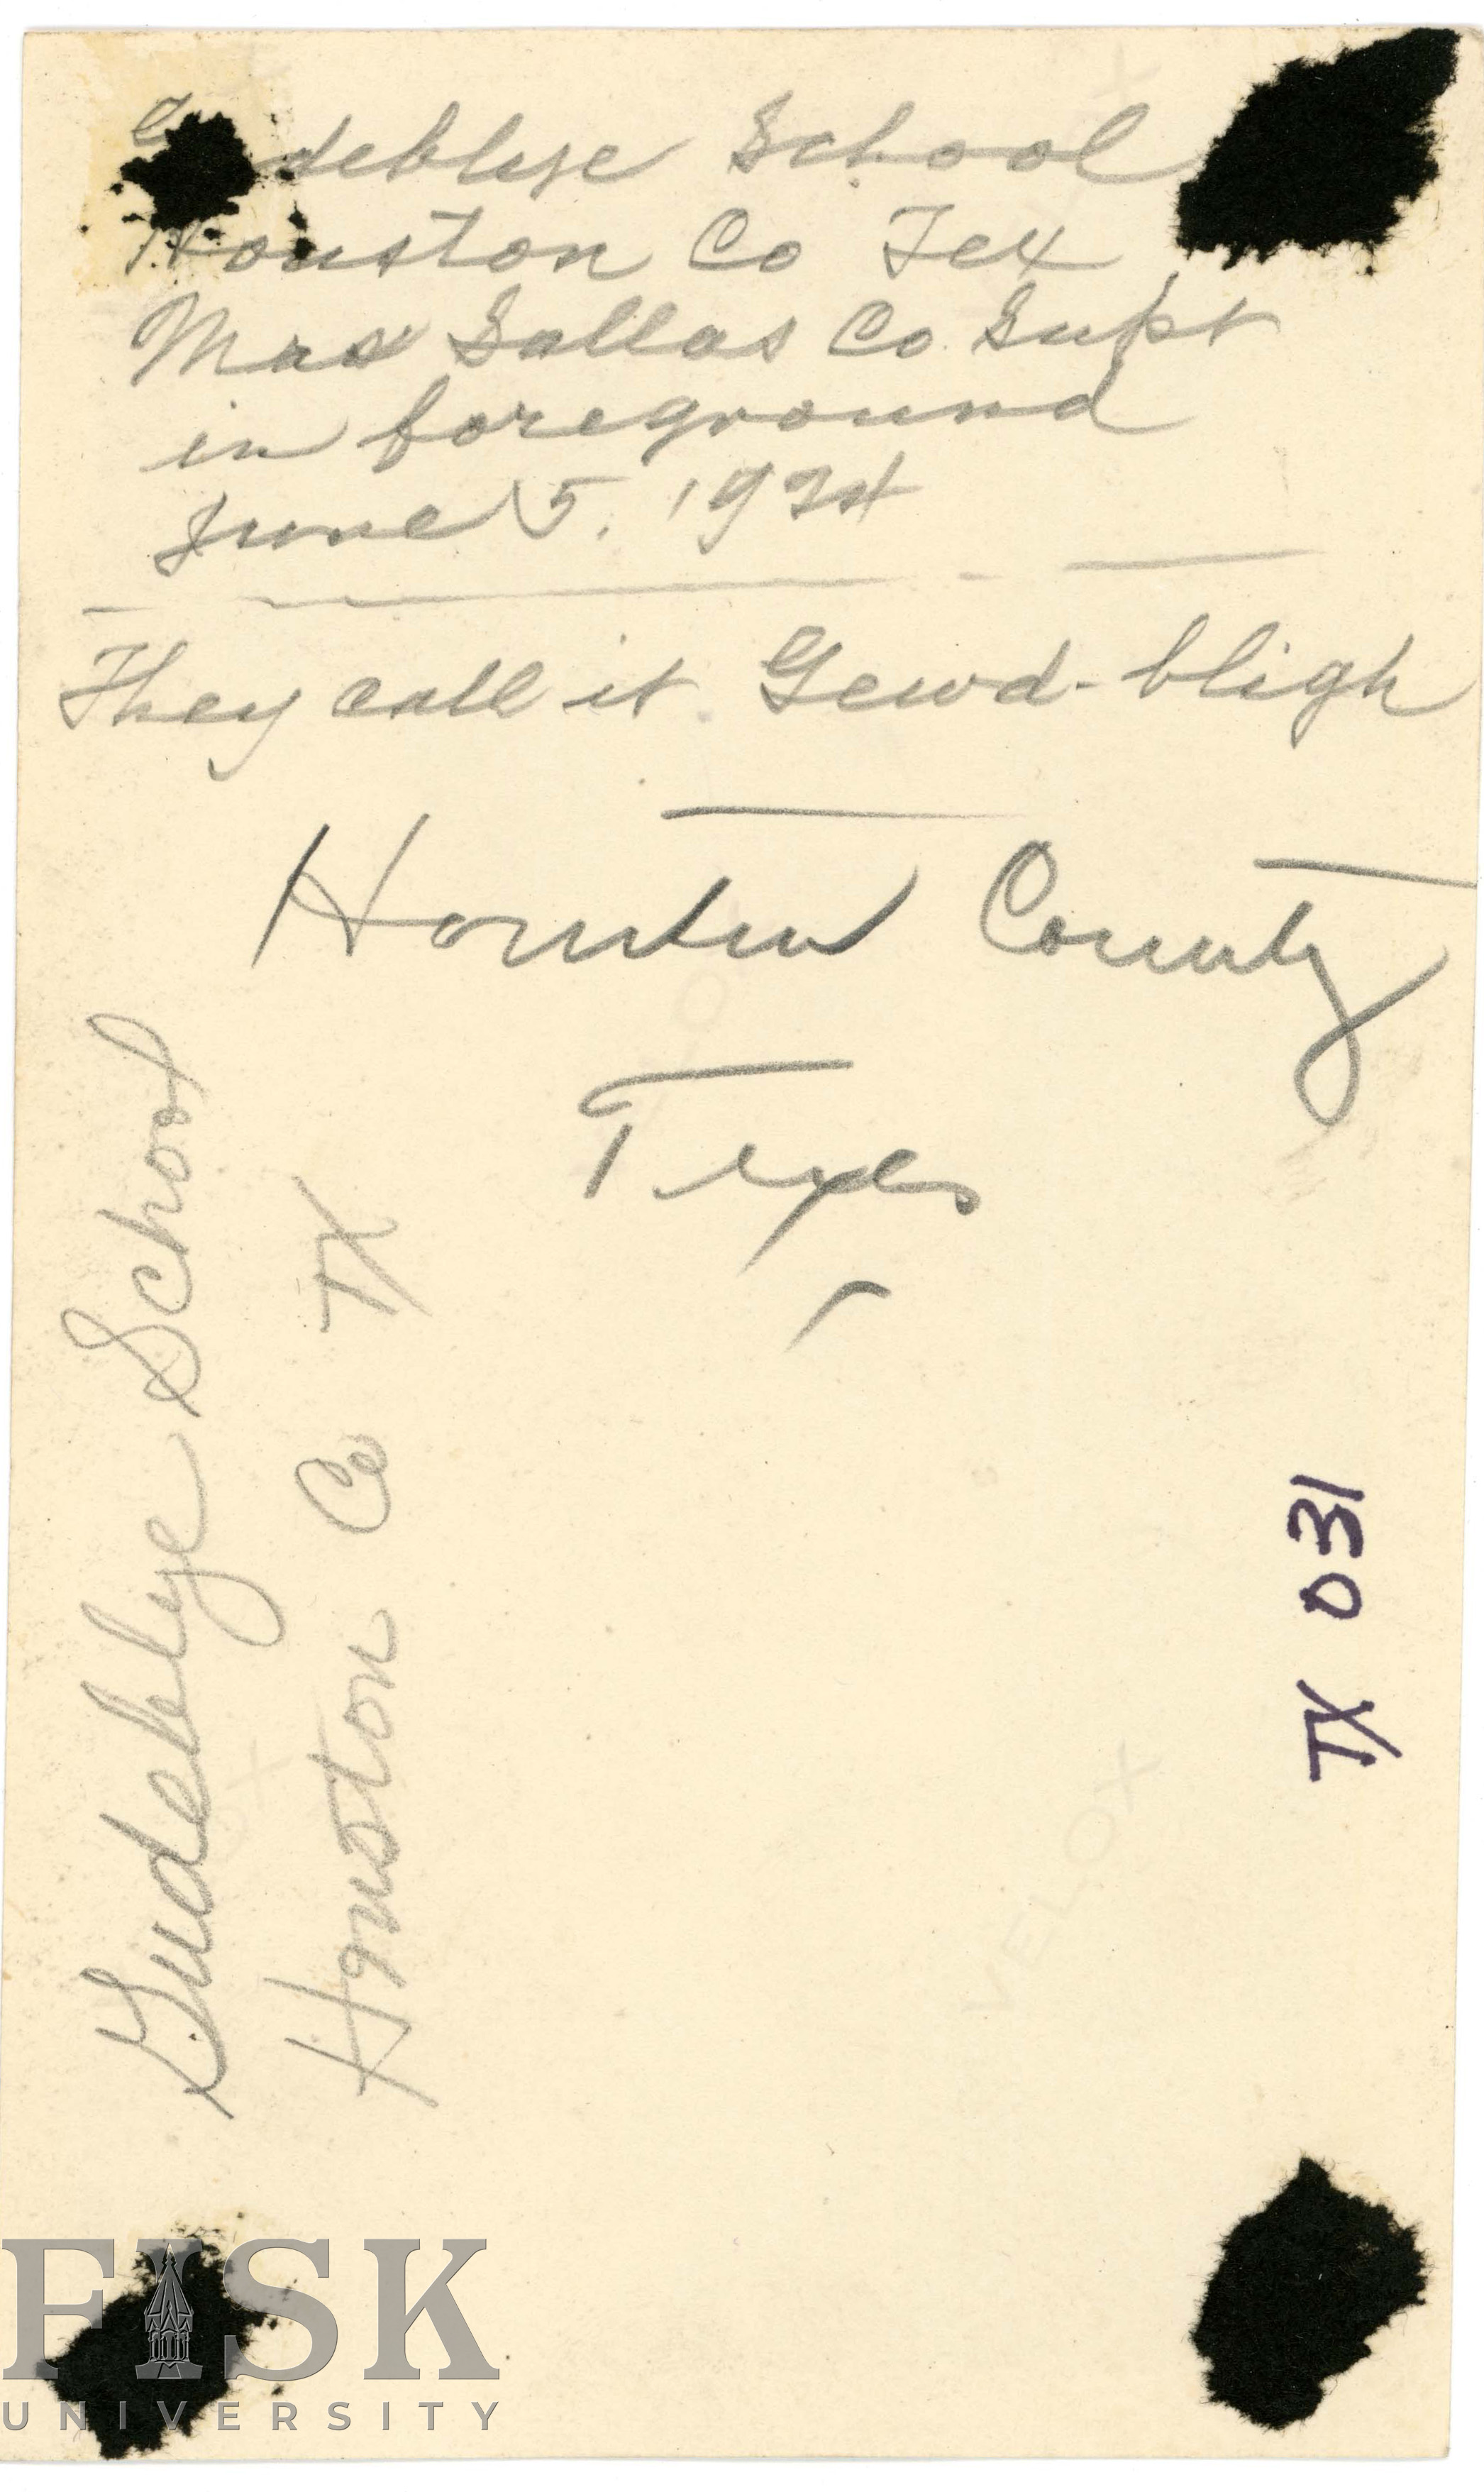 Gudeblye School
Houston Co Tex
Mrs Sallas Co Supt
in foreground
June 5, 1924
They call it Gewd-bligh
Houston County
Texas
Gudeblye School
Houston Co TX
TX 031
VELOX
FISK
UNIVERSITY